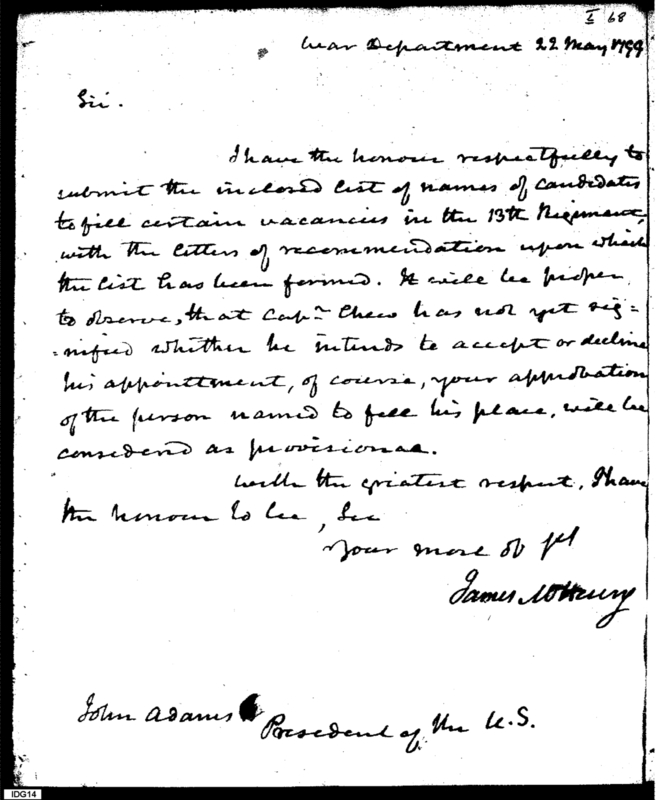 I 68
War Department 22 May 1799
Sir.
I have the honour respectfully to
submit the inclosed list of names of candidates
to fill certain vacancies in the 13th Regiment,
with the letters of recommendation upon which
the list has been formed. It will be proper
to observe, that Capn. Chew has not yet sig=
=nified whether he intends to accept or decline
his appointment, of course, your approbation
of the person named to fill his place, will be
considered as provisional.
With the greatest respect, I have
the honour to be, Sir
Your most ob st
James McHenry
John Adams President of the U.S.
IDG14